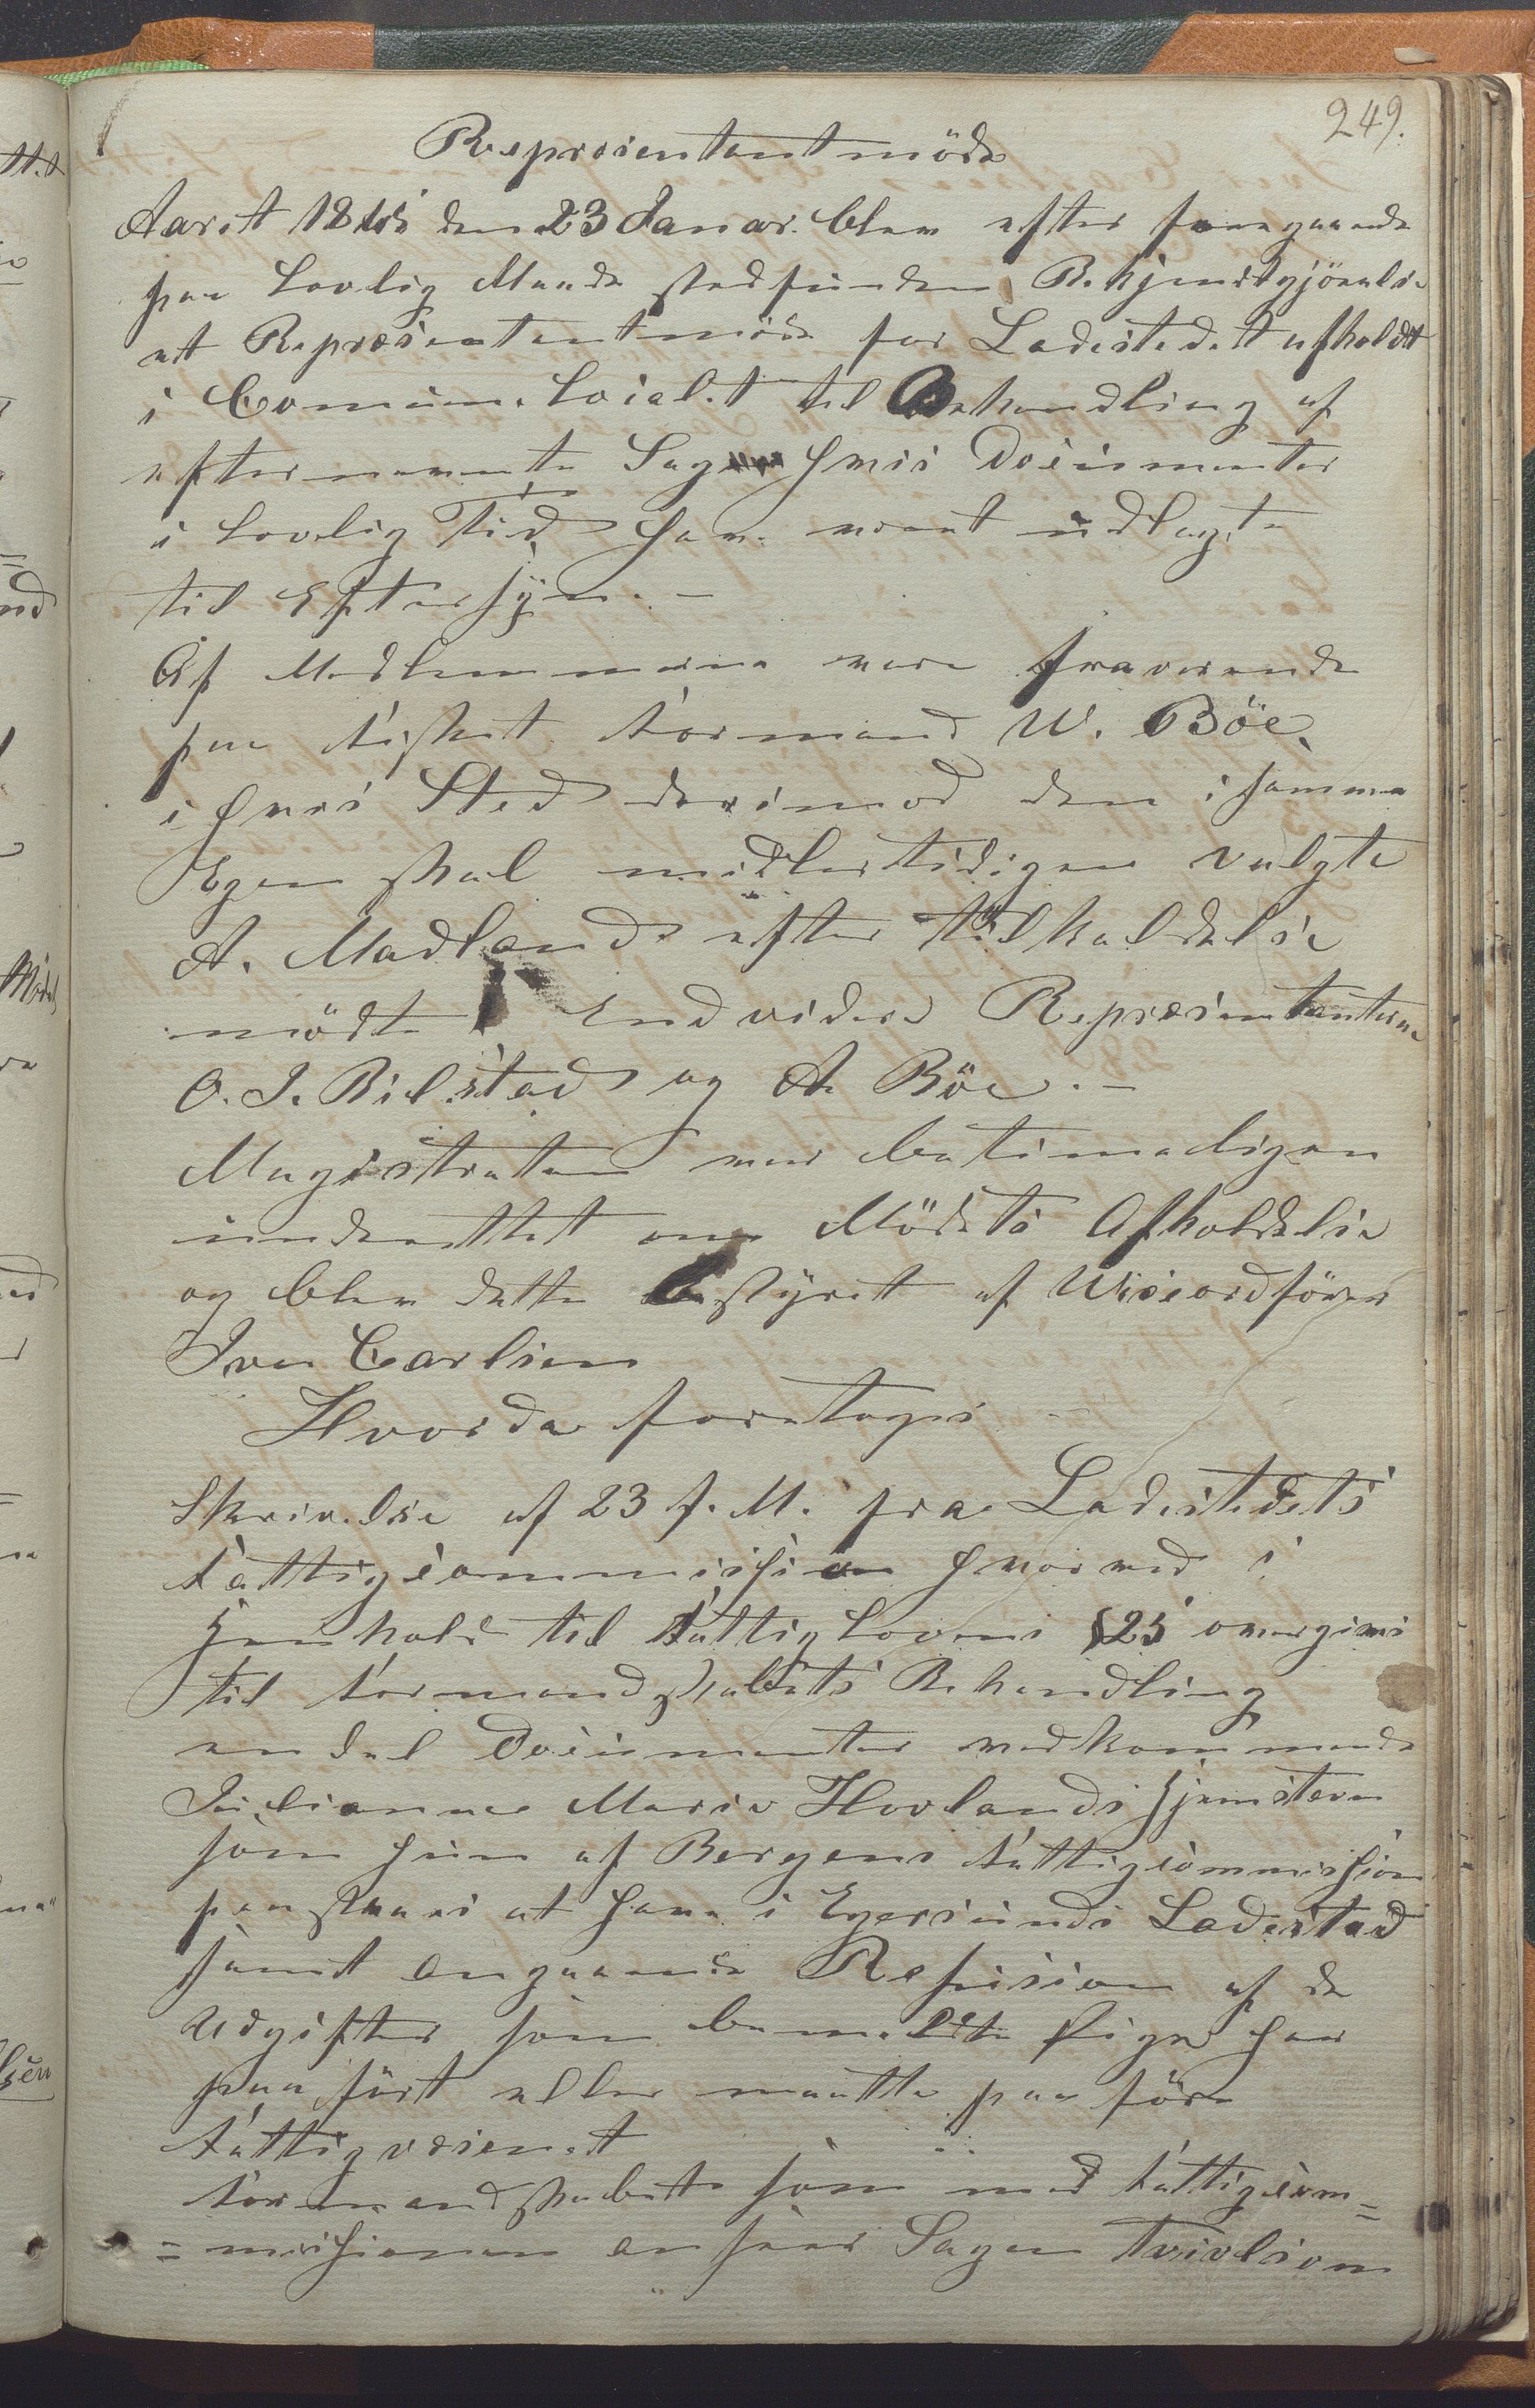 249.
Repræsentantmöde
Aaret 18 den 23 Januar blev efter foregaaende
paa lovlig Maade stedfunden Bekjendtgjörelse
et Repræsentantmöde for Ladestedet afholdt
i Comunelocalet til Behandling af
efternævnte Sager hvis Documenter
i lovlig Tid have været udlagte
til Eftersyn. –
Af Medlemmerne vare fraværende
paa Fiskeri Formand W. Böe,
i hvis Sted derimod den i samme
Egenskab midlertidigen valgte
A. Madland efter Tilkaldelse
mödte. Endvidere Repræsentanterne
O. I. Bilstad og A. Böe. –
Magistraten var betimeligen
underrettet om Mödets Afholdelse
og blev dette bestyret af Viceordförer
Iver Carlsen
Hvorda foretoges –
Skrivelse af 23 f. M. fra Ladestedets
Fattigcommission hvorved i
Henhold til Fattiglovens § 25 overgives
til Formandskabets Behandling
en Del Documenter vedkommende
Julianne Marie Hovlands Hjemstavn
som hun af Bergens Fattigcommission
paastaaes at have i Egersunds Ladested
samt angaaende Refusion af de
Udgifter som bemeldte Pige har
paaført eller maatte paaföre
Fattigvæsenet
Formandskabet som med Fattigcom=
=missionen anseer Sagen tvivlsom